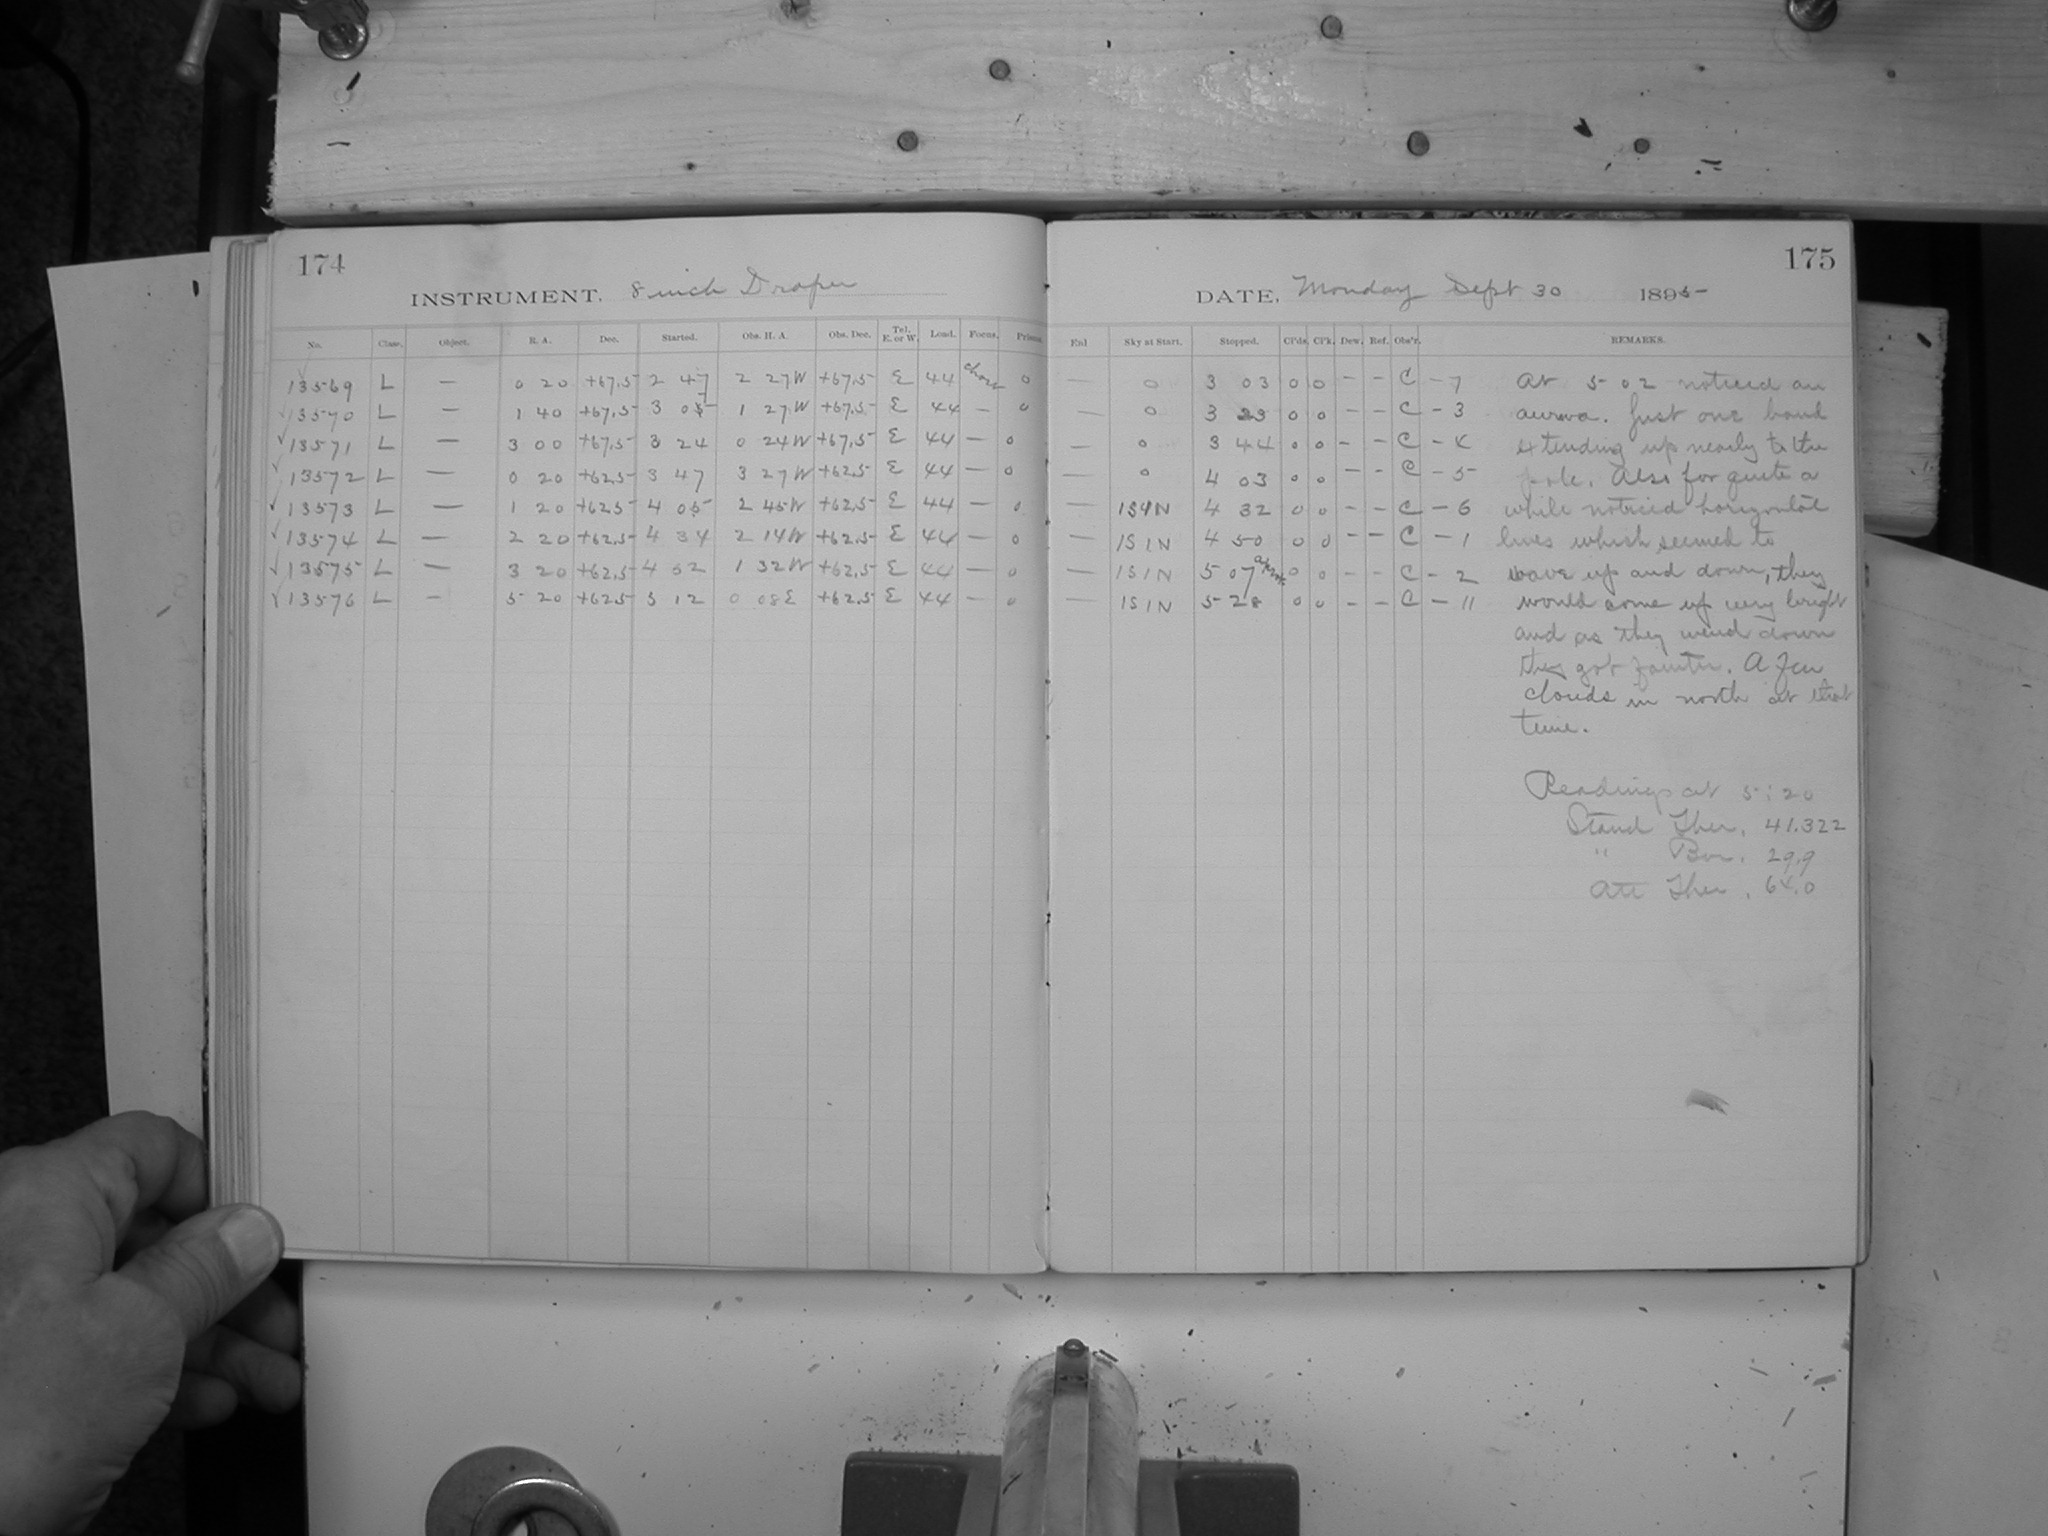 174
INSTRUMENT. 8 inch Draper
No. Class. Object. R. A. Dec. Started. Obs. H. A. Obs. Dec. Tel. E. or W. Load. Focus. Prisms.
13569 L — 0 20 +67.5 2 47 2 27W +67.5 E 44 0
13570 L — 1 40 +67.5 3 05 1 27W +67.5 E 44 — 0
13571 L — 3 00 +67.5 3 24 0 24W +67.5 E 44 — 0
13572 L — 0 20 +62.5 3 47 3 27W +62.5 E 44 — 0
13573 L — 1 20 +62.5 4 05 2 45W +62.5 E 44 — 0
13574 L — 2 20 +62.5 4 34 2 14W +62.5 E 44 — 0
13575 L — 3 20 +62.5 4 52 1 32W +62.5 E 44 — 0
13576 L — 5 20 +62.5 5 12 0 08E +62.5 E 44 — 0
175
DATE, Monday Sept 30 1895
Enl Sky at Start. Stopped. Cl'ds. Cl'k. Dew. Ref. Obs'r. REMARKS.
— 0 3 03 0 0 – – C – 7
— 0 3 23 0 0 – – C – 3
— 0 3 44 0 0 – – C – K
— 0 4 03 0 0 – – C – 5
— 1S4N 4 32 0 0 – – C – 6
— 1S1N 4 50 0 0 – – C – 1
— 1S1N 5 07 0 0 – – C – 2
— 1S1N 5 28 0 0 – – C – 11
At 5 02 noticed an
aurora. Just one band
extending up nearly to the
pole. Also for quite a
while noticed horizontal
lines which seemed to
wave up and down, they
would come up very bright
and as they went down
they got fainter. A few
clouds in north at that
time.
Readings at 5:20
Stand Ther. 41.322
" Bar. 29.9
Att Ther. 64.0